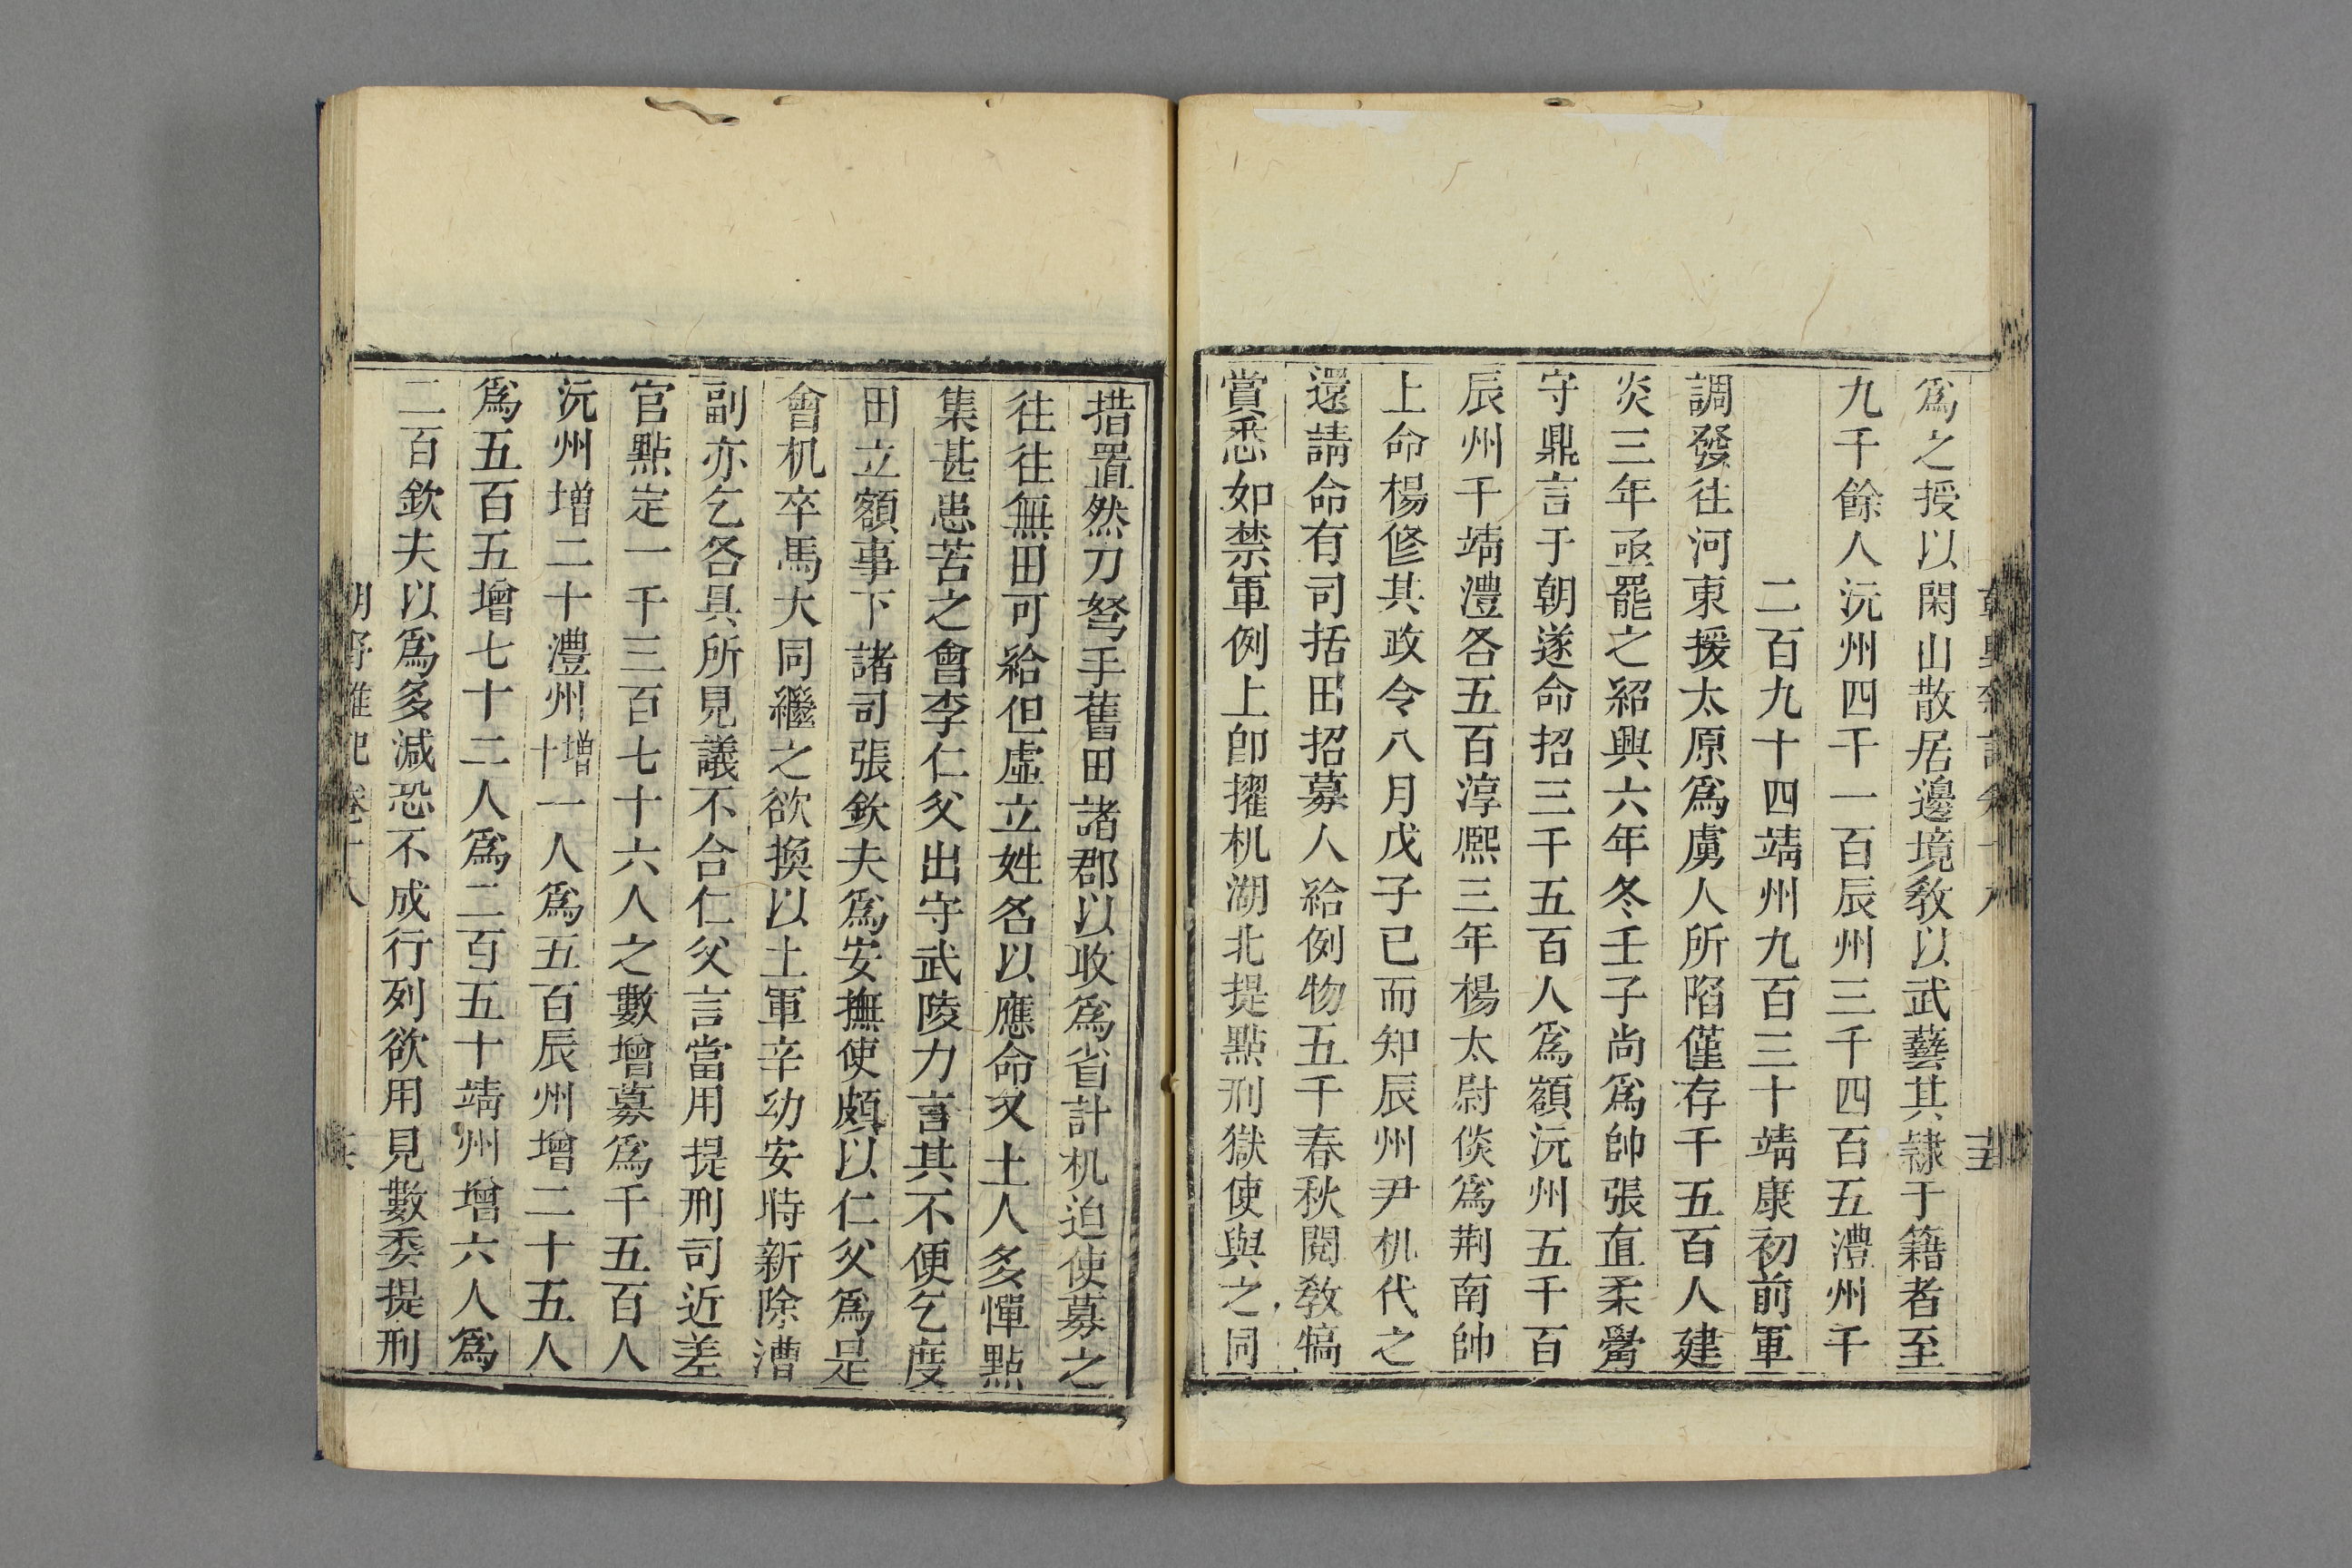 爲之授以閑山散居邊境敎以武藝其隷于籍者至
九千餘人沅州四千一百辰州三千四百五澧州千
二百九十四靖州九百三十靖康初前軍
調發往河東援太原爲虜人所陷僅存千五百人建
炎三年亟罷之紹興六年冬壬子尚爲帥張直柔
守鼎言于朝遂命招三千五百人爲額沅州五千百
辰州千靖澧各五百淳熙三年楊太尉倓爲荆南帥
上命楊修其政令八月戊子已而知辰州尹机代之
還請命有司括田招募人給例物五千春秋閱敎犒
賞悉如禁軍例上卽擢机湖北提點刑獄使與之同
措置然刀弩手舊田諸郡以收爲省計机迫使募之
往往無田可給但虛立姓名以應命又土人多憚點
集甚患苦之會李仁父出守武陵力言其不便乞度
田立額事下諸司張欽夫爲安撫使頗以仁父爲是
會机卒馬大同繼之欲換以土軍辛幼安時新除漕
副亦乞各具所見議不合仁父言當用提刑司近差
官點定一千三百七十六人之數增募爲千五百人
沅州增二十澧州增十一人爲五百辰州增二十五人
爲五百五增七十二人爲二百五十靖州增六人爲
二百欽夫以爲多減恐不成行列欲用見數委提刑
朝野雜記卷十八